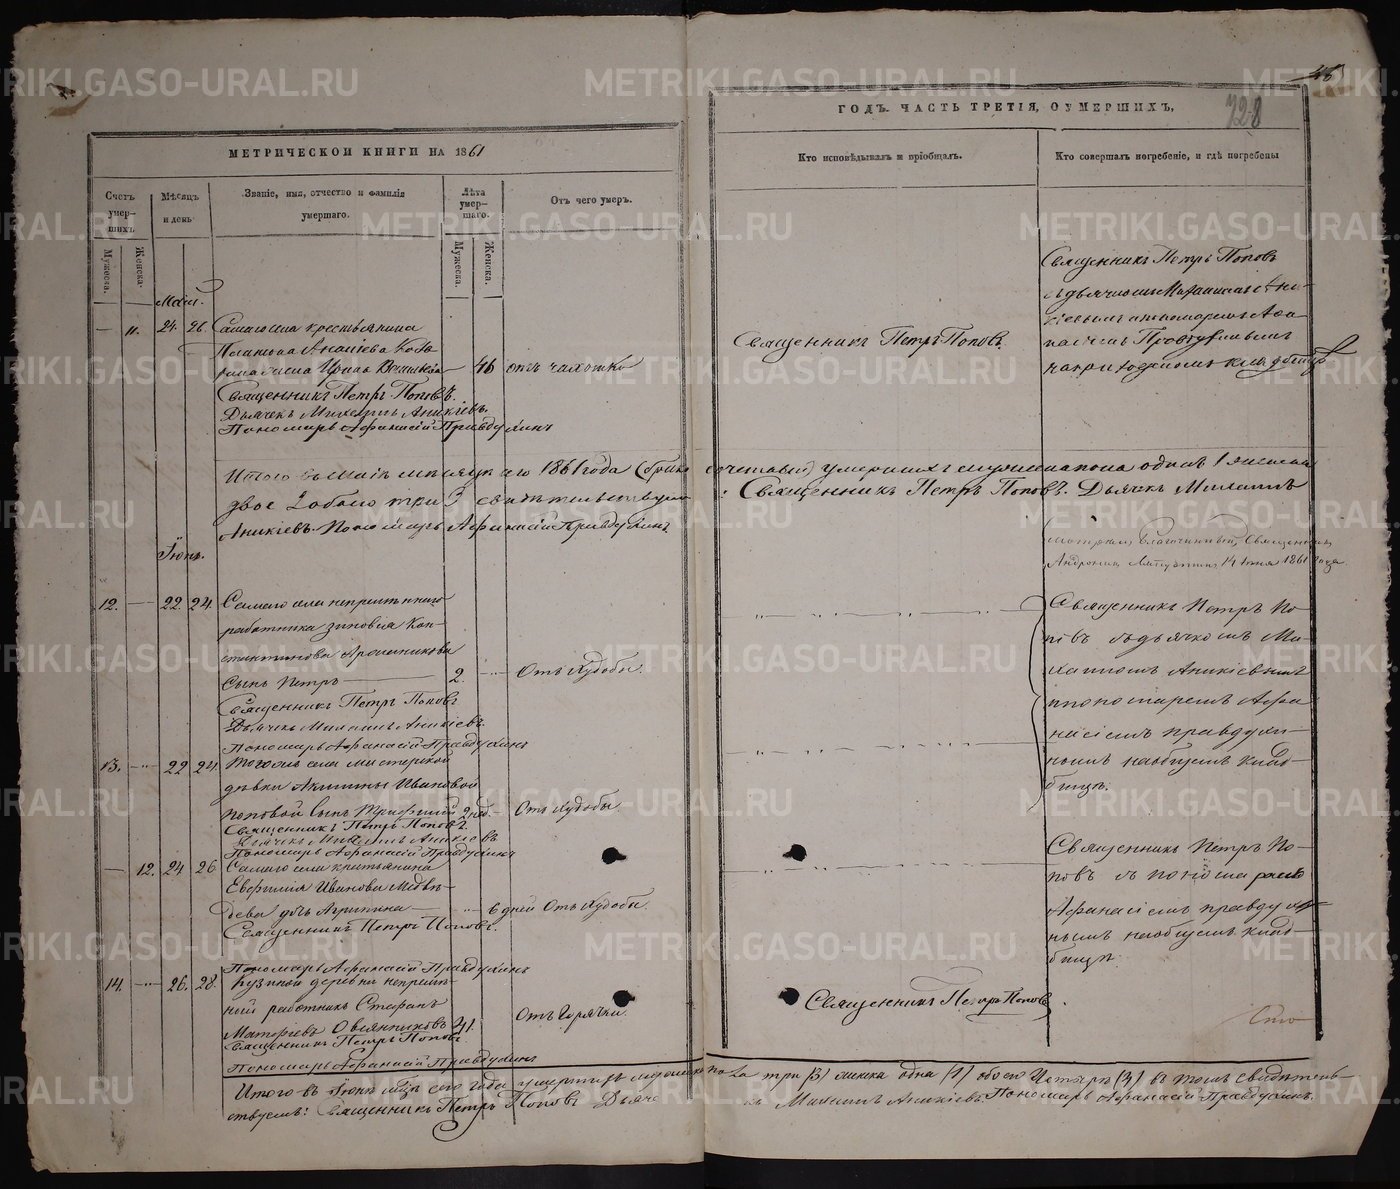 МЕТРИЧЕСКОЙ КНИГИ НА 1861
Счетъ умер-шихъ
Мѣсяцъ и день
Званіе, имя, отчество и фамилія умершаго.
Лѣта умер-шаго.
Отъ чего умеръ.
Мужеска. Женска.
Мужеска. Женска.
Май.
— 11. 24. 26. Самаго села крестьянина
46 отъ чахотки
Священникъ Петръ Поповъ.
Дьячекъ Михаилъ Аникіевъ.
Пономарь Афанасій Правдухинъ
Итого въ маіи мѣсяцѣ сего 1861 года
двое 2 обоего три 3
Аникіевъ. Пономарь Афанасій Правдухинъ
Іюнь.
12. — 22 24 Самаго села непремѣннаго
работника Зиновія Кон-
стантинова
Сынъ Петръ — 2. — Отъ Худобы.
Священникъ Петръ Поповъ
Дьячекъ Михаилъ Аникіевъ.
Пономарь Афанасій Правдухинъ
13. — 22 24 Тогоже села мастерской
дѣвки Акилины Ивановой
Поповой Сынъ 2 нед. Отъ Худобы
Священникъ Петръ Поповъ.
Дьячекъ Михаилъ Аникіевъ
Пономарь Афанасій Правдухинъ
— 12. 24 26 Самаго села крестьянина
Евфимія Иванова Медвѣ-
дева дочь Агрипина — 6 дней Отъ Худобы.
Священникъ Петръ Поповъ.
Пономарь Афанасій Правдухинъ
14. — 26. 28. Кузиной деревни непремѣн-
ный работникъ Стефанъ
Матфеевъ Овсянниковъ 41. Отъ Горячки.
Священникъ Петръ Поповъ.
Пономарь Афанасій Правдухинъ
Итого въ Іюнѣ мѣсяцѣ сего года умершихъ
ствуемъ: Священникъ Петръ Поповъ Дьяче
728
ГОДЪ. ЧАСТЬ ТРЕТІЯ, О УМЕРШИХЪ,
Кто исповѣдывалъ и пріобщалъ.
Кто совершалъ погребеніе, и гдѣ погребены
Священникъ Петръ Поповъ.
Священникъ Петръ Поповъ
съ дьячкомъ Михаиломъ Ани-
кіевымъ и пономаремъ Афа-
насіемъ Правдухинымъ
на приходскомъ кладбищѣ
умершихъ мужеска пола одинъ 1 женска
Священникъ Петръ Поповъ. Дьячекъ Михаилъ
Благочинный, Священникъ
14 Іюня 1861 года
Священникъ Петръ По-
повъ съ дьячкомъ Ми-
хаиломъ Аникіевымъ
и пономаремъ Афа-
насіемъ Правдухи-
нымъ на общемъ клад-
бищѣ.
Священникъ Петръ По-
повъ съ пономаремъ
Афанасіемъ Правдухи-
нымъ на общемъ клад-
бищѣ.
Священникъ Петръ Поповъ.
три (3) женска одна (1) обоего Четыре (4) въ томъ свидѣтель-
къ Михаилъ Аникіевъ. Пономарь Афанасій Правдухинъ.
METRIKI.GASO-URAL.RU